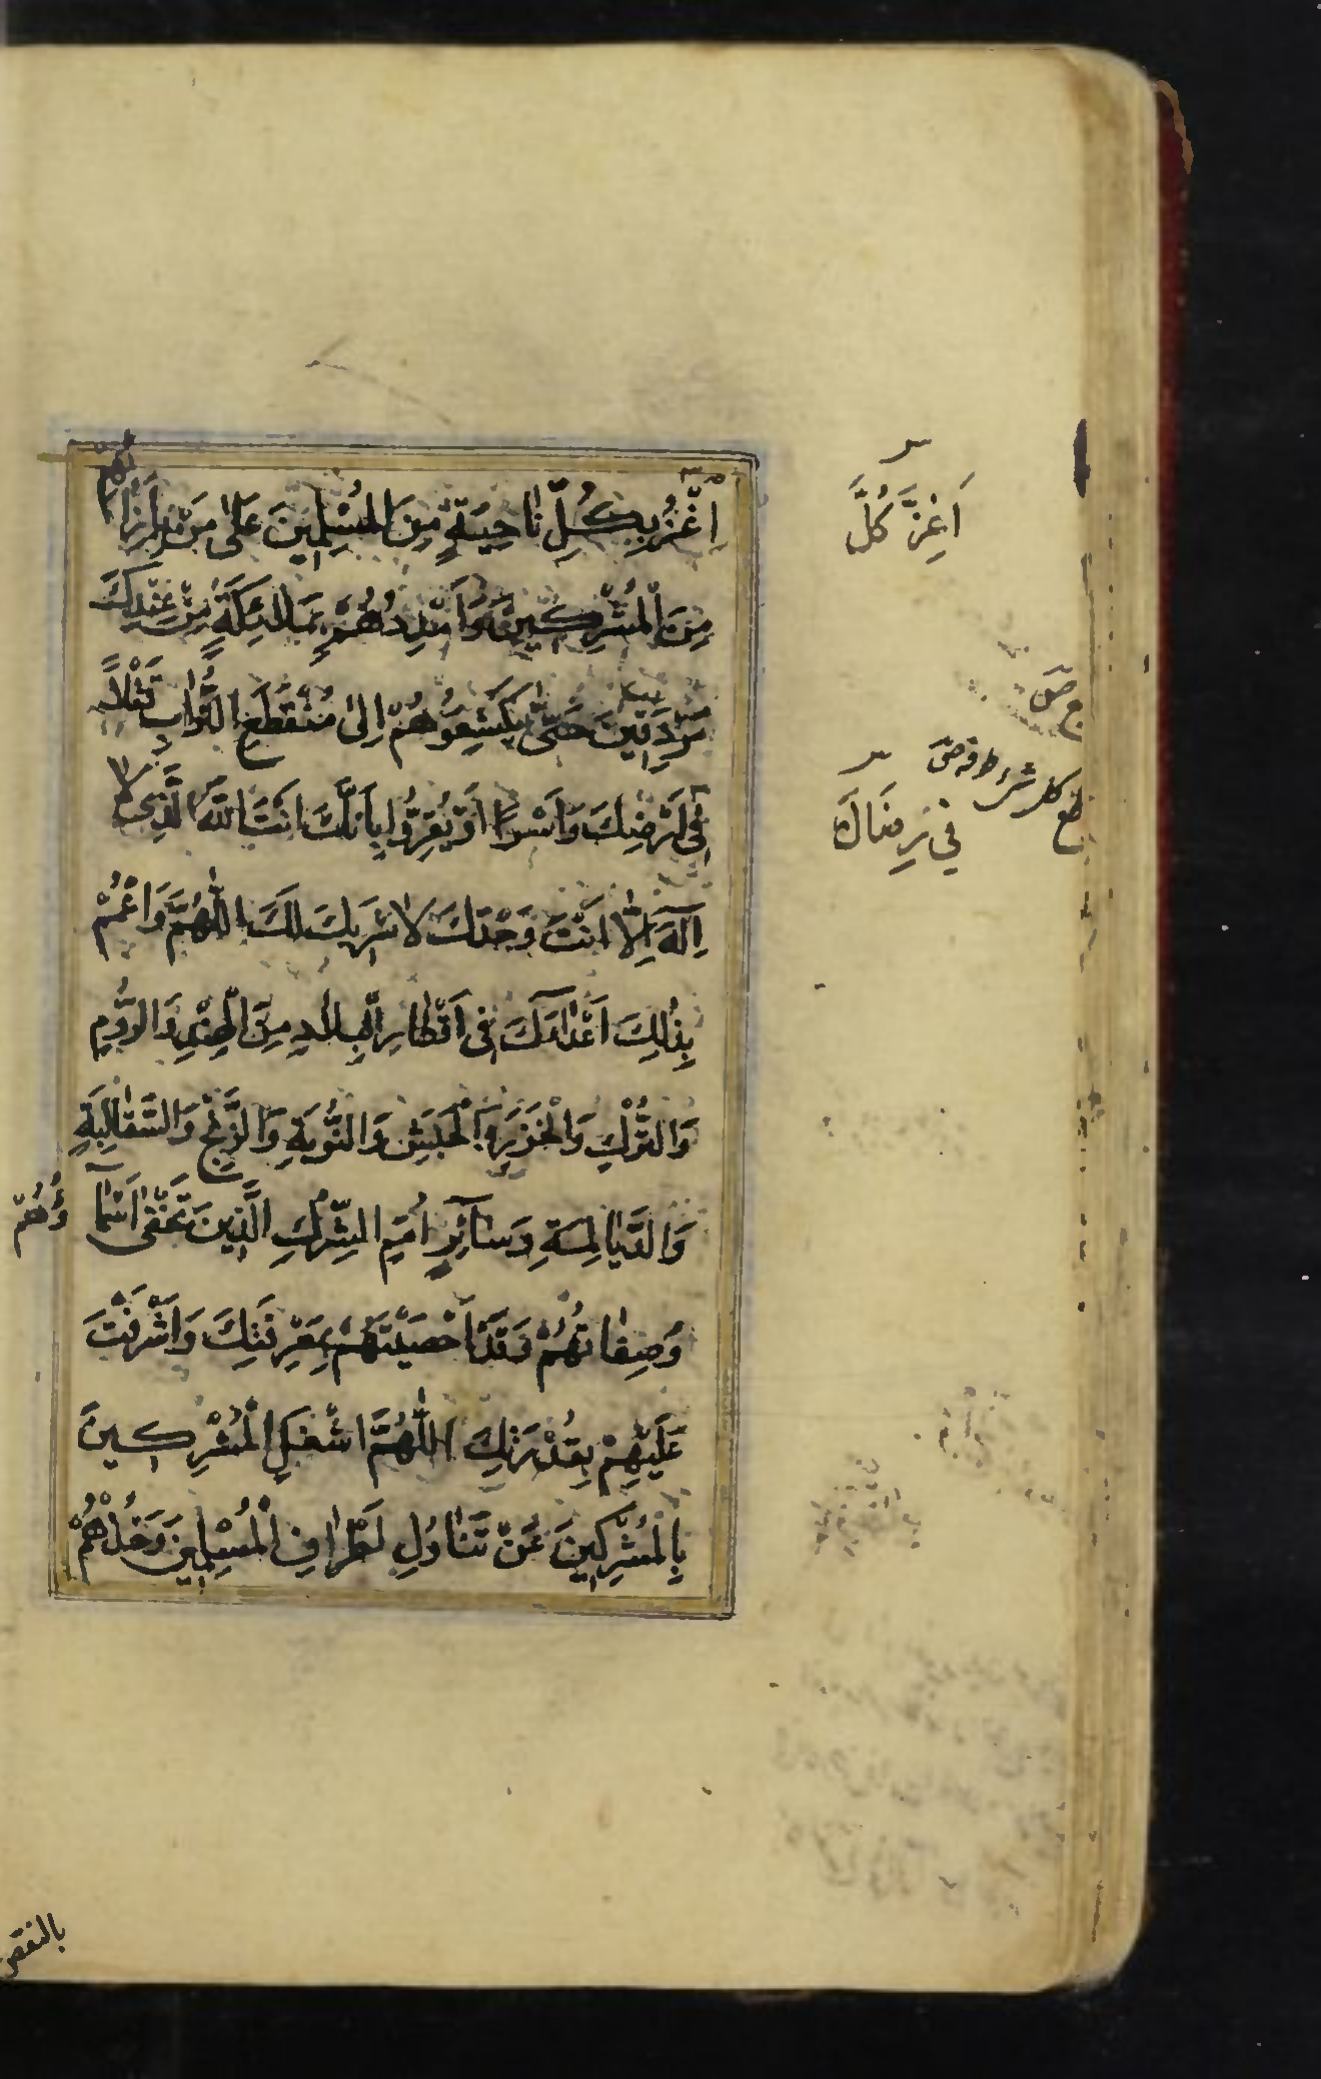 اُغْزُ بِكُلِّ نَاحِيَةٍ مِنَ الْمُسْلِمِينَ عَلَىٰ مَنْ بِإِزَائِهِمْ
مِنَ الْمُشْرِكِينَ وَأَمْدِدْهُمْ بِمَلَائِكَةٍ مِنْ عِنْدِكَ
مُرْدِفِينَ حَتَّىٰ يَكْشِفُوهُمْ إِلَىٰ مُنْقَطَعِ التُّرَابِ قَتْلًا
فِي أَرْضِكَ وَأَسْرًا أَوْ يُقِرُّوا بِأَنَّكَ أَنْتَ اللَّهُ الَّذِي لَا
إِلَٰهَ إِلَّا أَنْتَ وَحْدَكَ لَا شَرِيكَ لَكَ اللَّهُمَّ وَاعْمُمْ
بِذَٰلِكَ أَعْدَاءَكَ فِي أَقْطَارِ الْبِلَادِ مِنَ الْهِنْدِ وَالرُّومِ
وَالتُّرْكِ وَالْخَزَرِ وَالْحَبَشِ وَالنُّوبَةِ وَالزَّنْجِ وَالسَّقَالِبَةِ
وَالدَّيَالِمَةِ وَسَآئِرِ أُمَمِ الشِّرْكِ الَّذِينَ تَخْفَىٰ أَسْمَآؤُهُمْ
وَصِفَاتُهُمْ وَقَدْ أَحْصَيْتَهُمْ بِمَعْرِفَتِكَ وَأَشْرَفْتَ
عَلَيْهِمْ بِقُدْرَتِكَ اللَّهُمَّ اشْغَلِ الْمُشْرِكِينَ
بِالْمُشْرِكِينَ عَنْ تَنَاوُلِ أَطْرَافِ الْمُسْلِمِينَ وَخُذْهُمْ
أَغِزَّ كُلَّ
في
بالنقص